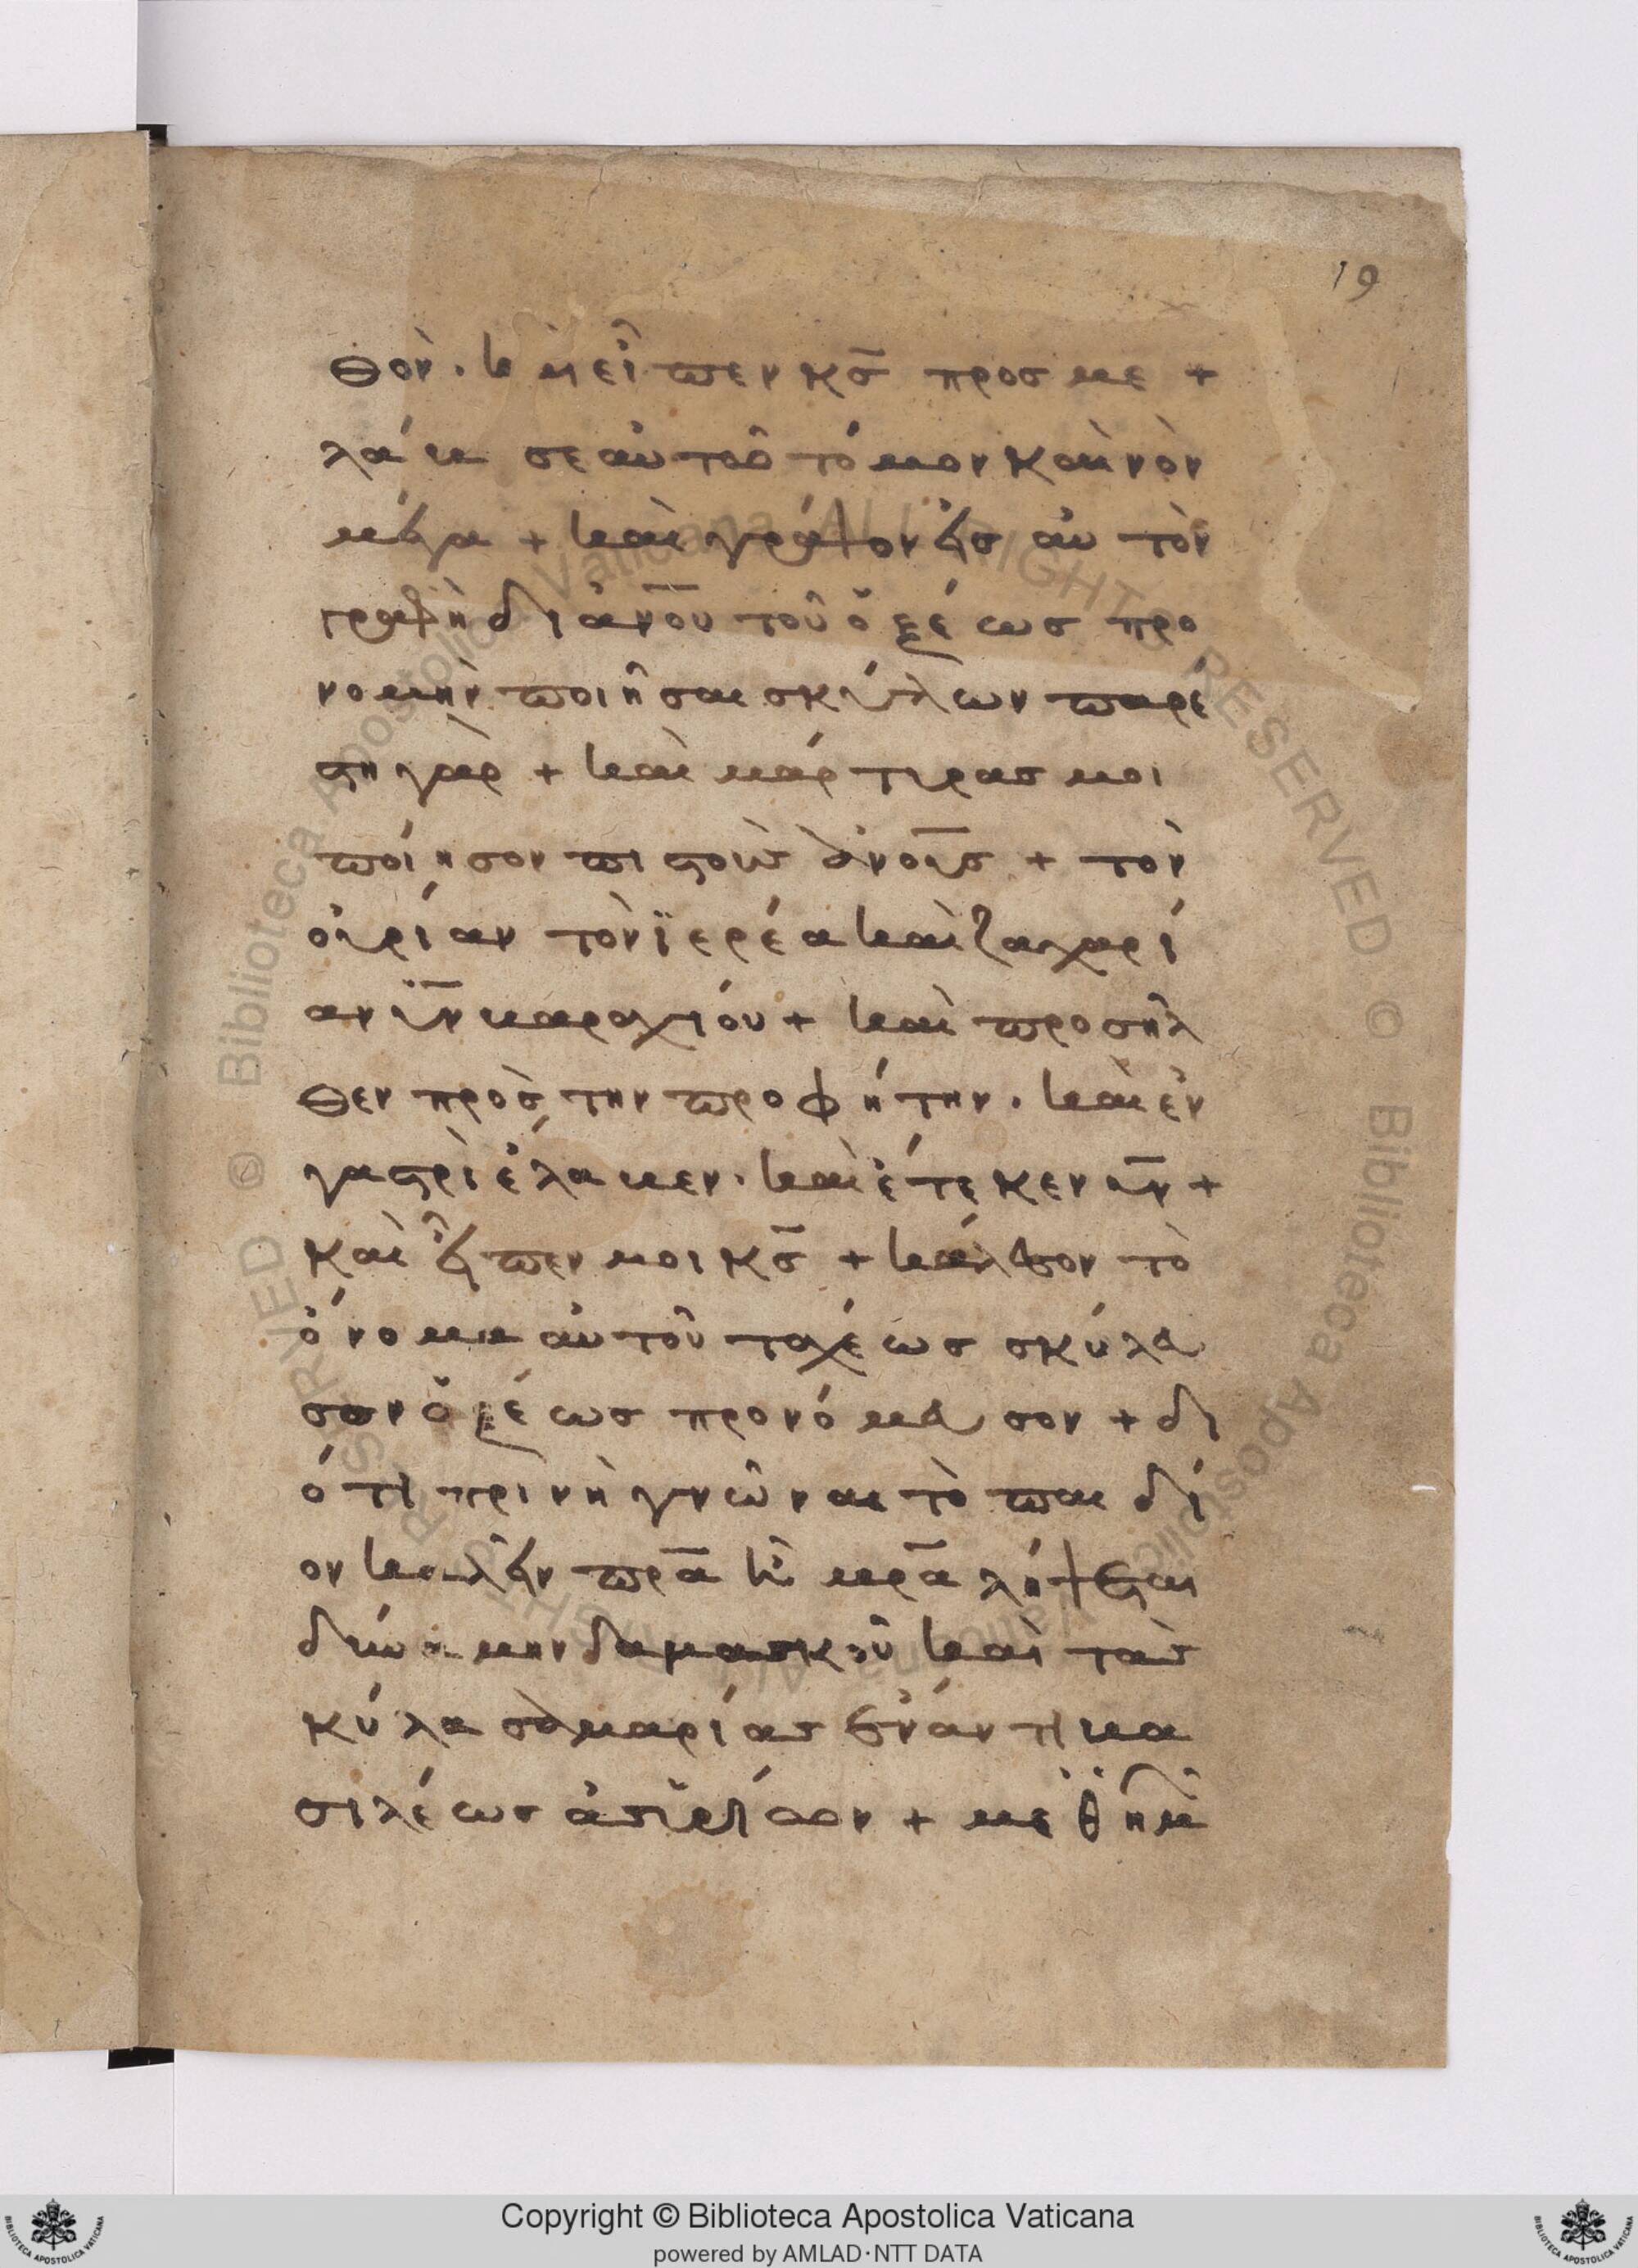 19
θον. κ(αὶ) εἶπεν κ̅σ̅ προσ με +
λάβε σεαυτοῦ τόμον καινὸν
μέγα + καὶ γράψον εἰσ αὐτὸν
γραφὴ δι ἀν̅ο̅υ̅ τοῦ ὀξέωσ προ
νομὴν ποιῆσαι σκύλων παρέ
στη γὰρ + καὶ μάρτυρασ μοι
ποίησον πιστοὺσ ἀν̅ο̅υ̅σ̅ + τὸν
οὐρίαν τὸν ϊερέα καὶ ζαχαρί
αν ϋ̅ν̅ βαραχίου + καὶ προσῆλ
θεν πρὸσ την προφήτην. καὶ ἐν
γαστρὶ ἔλαβεν. καὶ ἔτεκεν υ̅ν̅ +
καὶ εἶπεν μοι κ̅σ̅ + κάλεσον τὸ
ὄνομα αὐτοῦ ταχέωσ σκύλευ
σον ὀξέωσ προνόμευσον + δι
ότι πρὶν ἢ γνῶναι τὸ παιδί
ον καλεῖν π̅ρ̅α̅ ἢ μ̅ρ̅α̅ λήψεται
δύναμην δαμασκοῦ καὶ τὰ σ
κύλα σαμαρίασ ἐνάντι βα
σιλέωσ ἀσυρίων + μεθ ημῶ
Copyright © Biblioteca Apostolica Vaticana
powered by AMLAD·NTT DATA